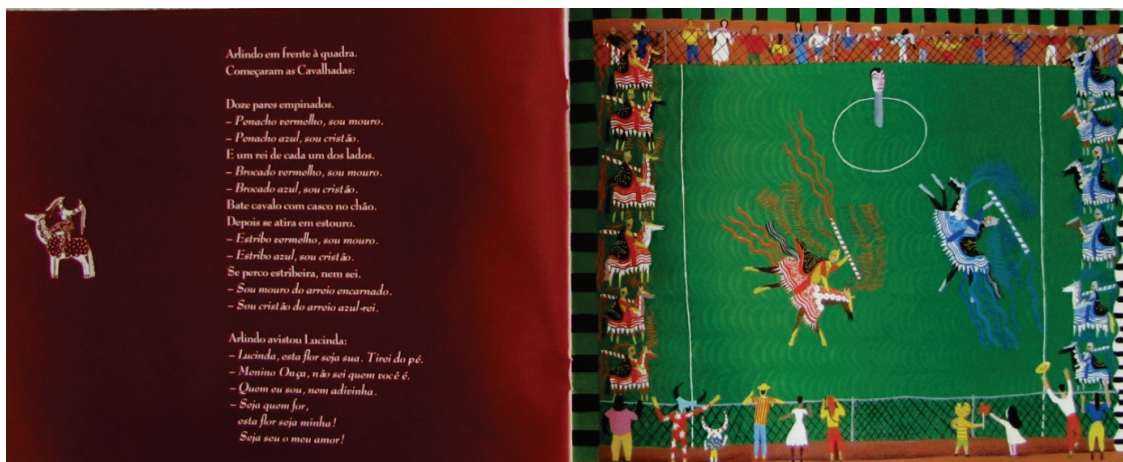 Arlindo em frente à quadra.
Começaram as Cavalhadas:
Doze pares empinados.
– Penacho vermelho, sou mouro.
– Penacho azul, sou cristão.
E um rei de cada um dos lados.
– Brocado vermelho, sou mouro.
– Brocado azul, sou cristão.
Bate cavalo com casco no chão.
Depois se atira em estouro.
– Estribo vermelho, sou mouro.
– Estribo azul, sou cristão.
Se perco estribeira, nem sei.
– Sou mouro do arreio encarnado.
– Sou cristão do arreio azul-rei.
Arlindo avistou Lucinda:
– Lucinda, esta flor seja sua. Tirei do pé.
– Menino Onça, não sei quem você é.
– Quem eu sou, nem adivinha.
– Seja quem for,
esta flor seja minha!
Seja seu o meu amor!